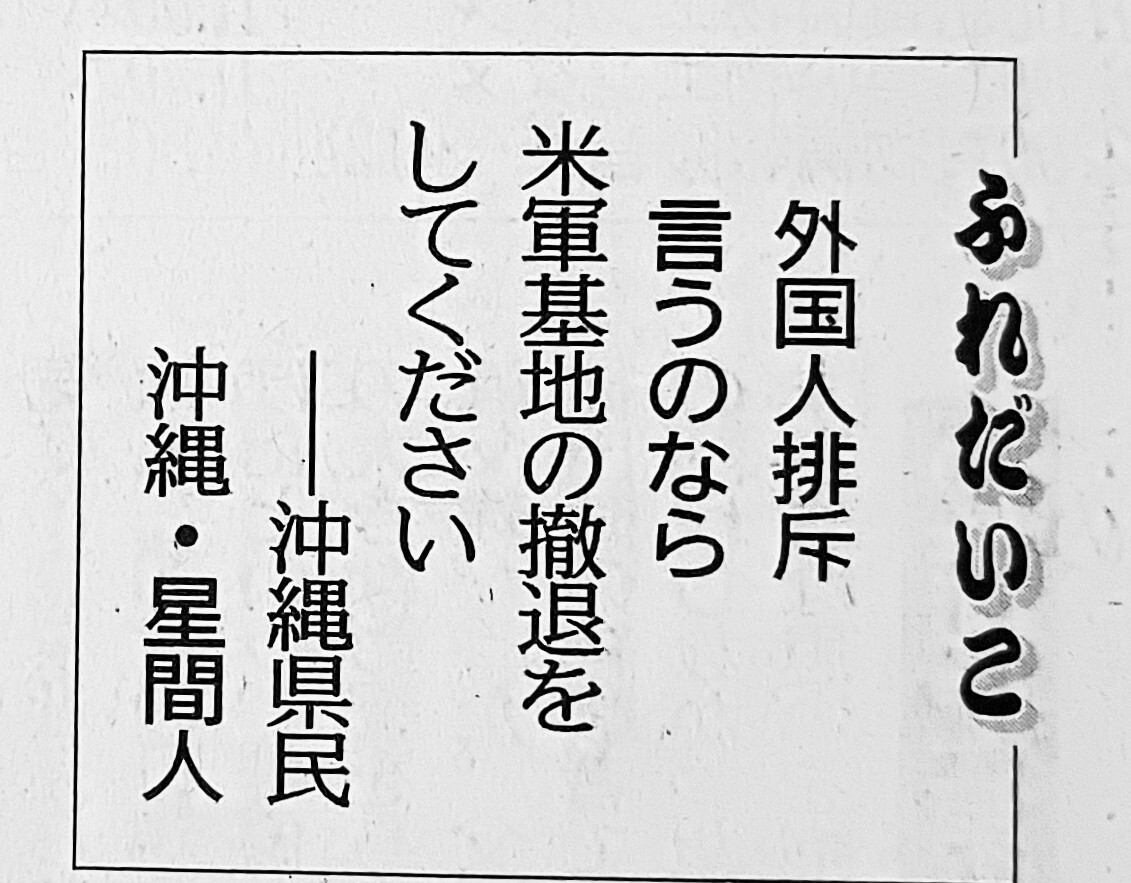 ふれだいこ
外国人排斥
言うのなら
米軍基地の撤退を
してください
――沖縄県民
沖縄・星間人